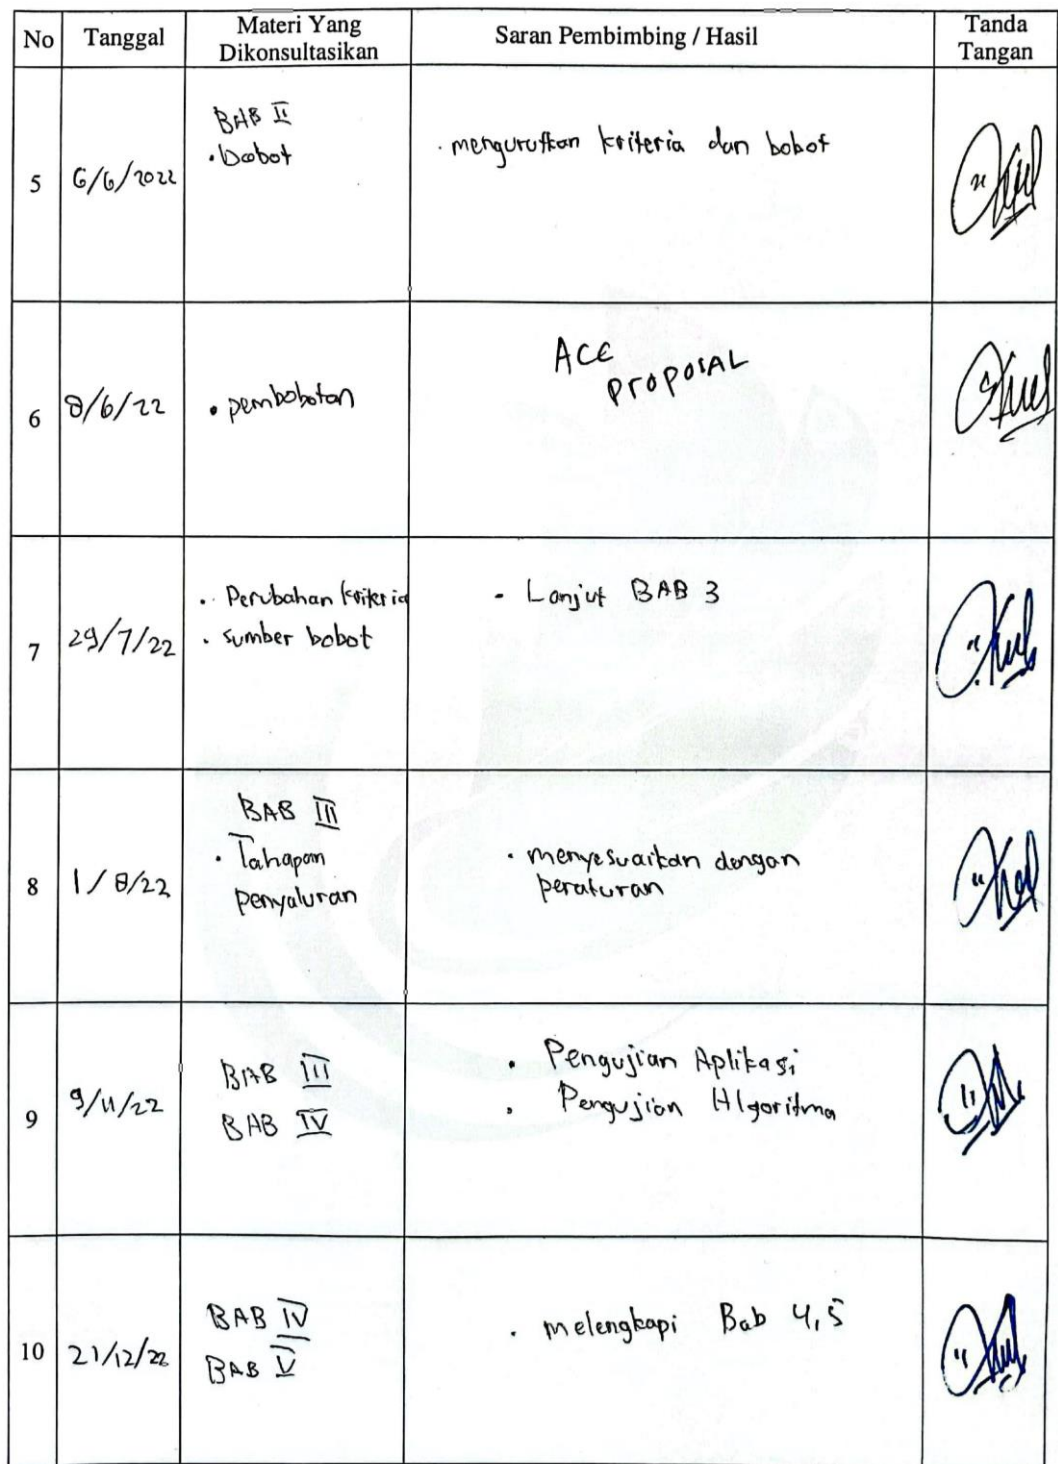 No Tanggal Materi Yang Dikonsultasikan Saran Pembimbing / Hasil Tanda Tangan
5 6/6/2022 BAB II
· bobot · mengurutkan kriteria dan bobot
6 8/6/22 • pembobotan ACC
PROPOSAL
7 29/7/22 · Perubahan kriteria - Lanjut BAB 3
· sumber bobot
8 1/8/22 BAB III
· Tahapan penyaluran · menyesuaikan dengan
peraturan
9 9/11/22 BAB III · Pengujian Aplikasi
BAB IV · Pengujian Algoritma
10 21/12/22 BAB IV · melengkapi Bab 4,5
BAB V